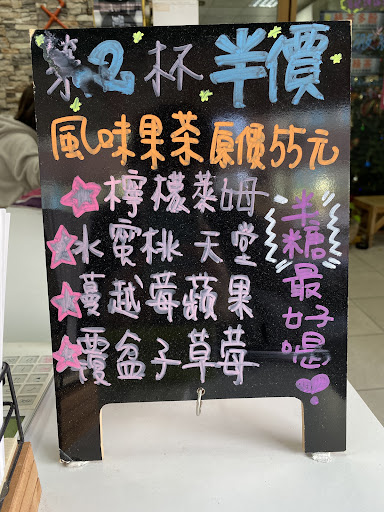 第2杯半價
風味果茶原價55元
檸檬萊姆
水蜜桃天堂
蔓越莓蘋果
覆盆子草莓
半糖最好喝